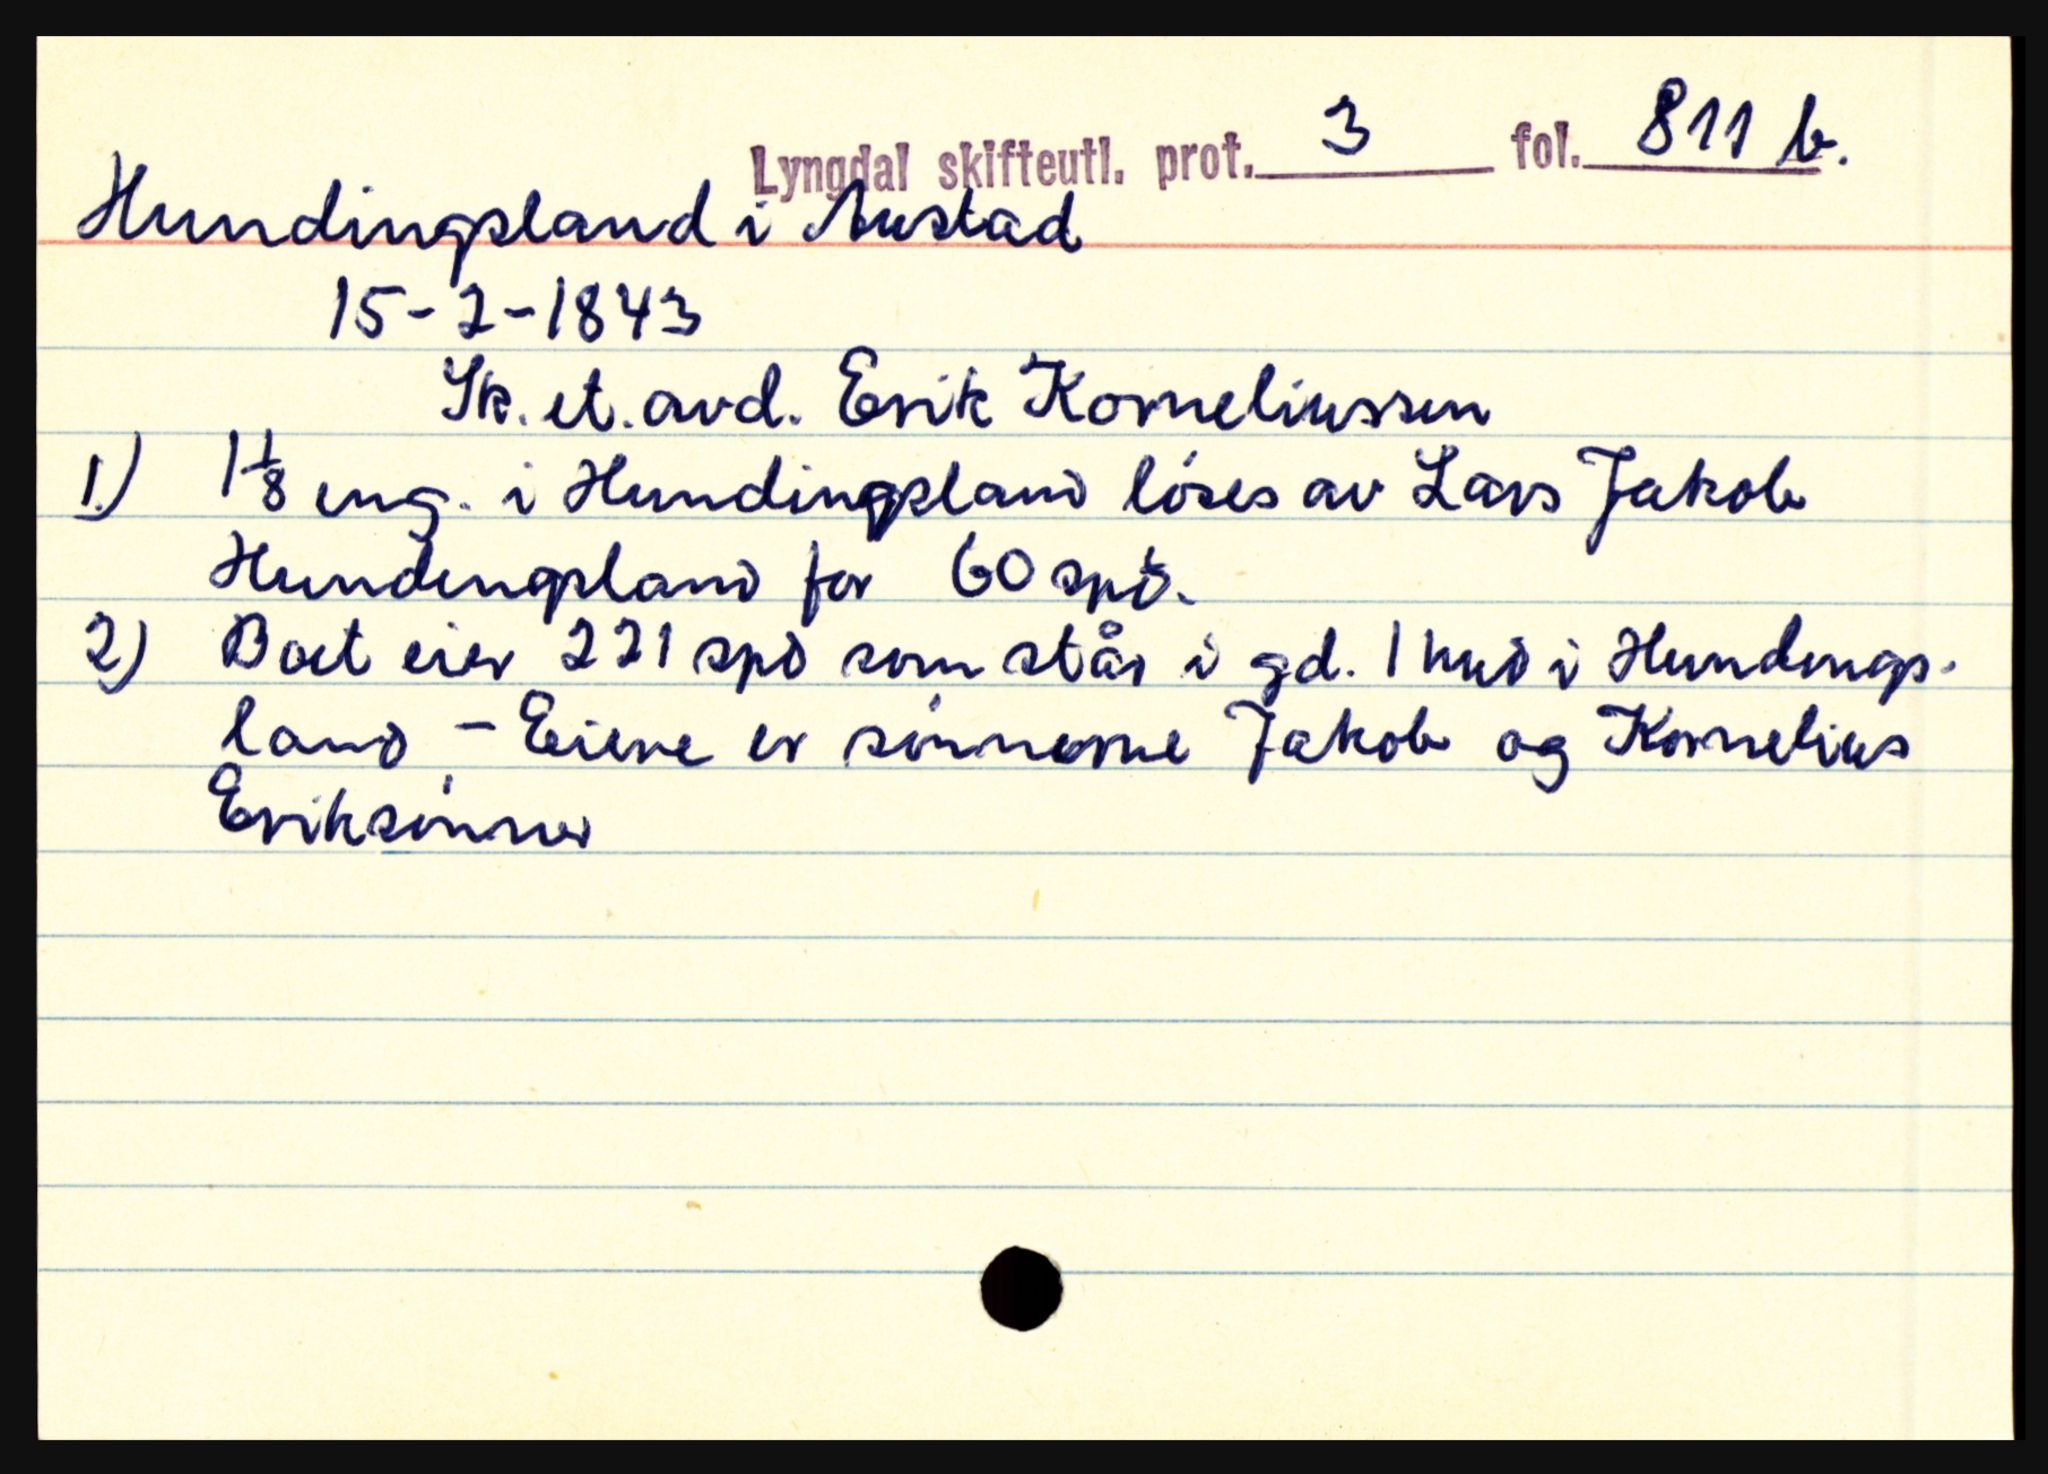 Lyngdal skifteutl. prot. 3 fol. 811 b.
Hundingsland i Austad
15-2-1843
Sk. et. avd. Erik Korneliussen
1.) 1 1/8 eng. i Hundingsland löses av Lars Jakob
Hundingsland for 60 spd.
2) Boet eier 221 spd som står i gd. 1 hud i Hundings-
land - Eiere er sønnerne Jakob og Kornelius
Eriksønner